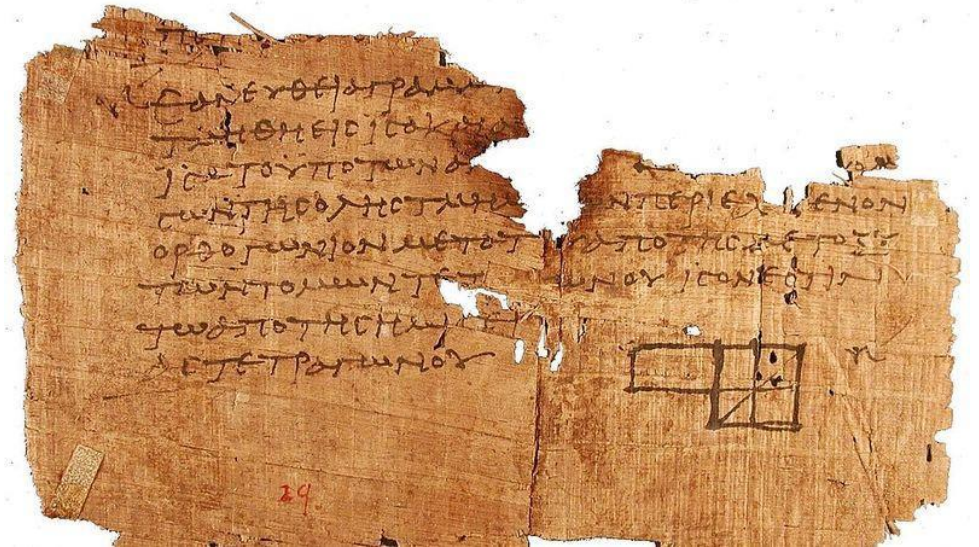 ΕΑΝΕΥΘΕΙΑΓΡΑΜΜ
ΤΜΗΘΗΕΙϹΙϹΑΚΑΙΑ
ΙϹΑΤΟΥΠΟΤΩΝΑ
ϹΩΝΤΗϹΟΛΗϹΤΜΗΜ ΩΝΠΕΡΙΕΧ ΜΕΝΟΝ
ΟΡΘΟΓΩΝΙΟΝΜΕΤΑΤ ΑΠΟΤΗϹΜΕΤΟΞΥ
ΤΩΝΤΟΜΩΝΤΕΤ ΩΝΟΥΙϹΟΝΕϹΤΙΝ
ΤΩΑΠΟΤΗϹΗΜΙϹΕΙ
ΤΕΤΡΑΓΩΝΟΥ
29